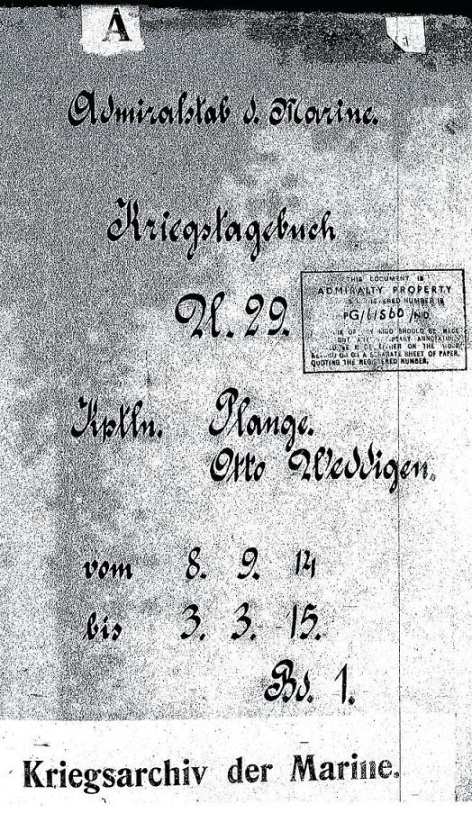 A
Admiralstab d. Marine.
Kriegstagebuch
U. 29.
THIS DOCUMENT IS
ADMIRALTY PROPERTY
REGISTERED NUMBER IS
PG/61560/NID
OF ANY KIND SHOULD BE MADE
ON THE
ON A SEPARATE SHEET OF PAPER,
QUOTING THE REGISTERED NUMBER.
Kptltn. Plange.
Otto Weddigen.
vom 8. 9. 14
bis 3. 3. 15.
Bd. 1.
Kriegsarchiv der Marine.